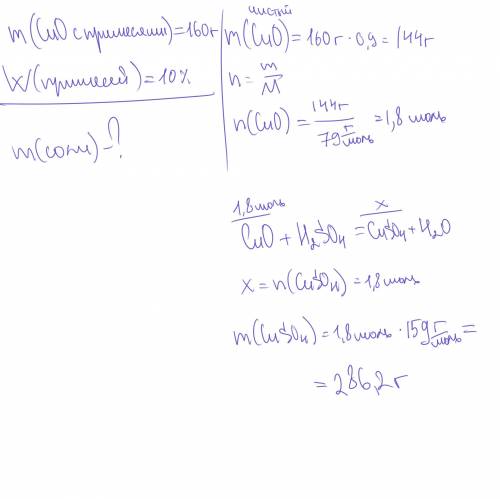 m(CuO с примесями)=160г
W(примесей)=10%
m(соли)-?
чистый
m(CuO)=160г·0,9=144г
n=m/M
n(CuO)=144г/79г/моль=1,8 моль
1,8 моль x
CuO+H2SO4=CuSO4+H2O
x=n(CuSO4)=1,8 моль
m(CuSO4)=1,8 моль·159г/моль=
=286,2г